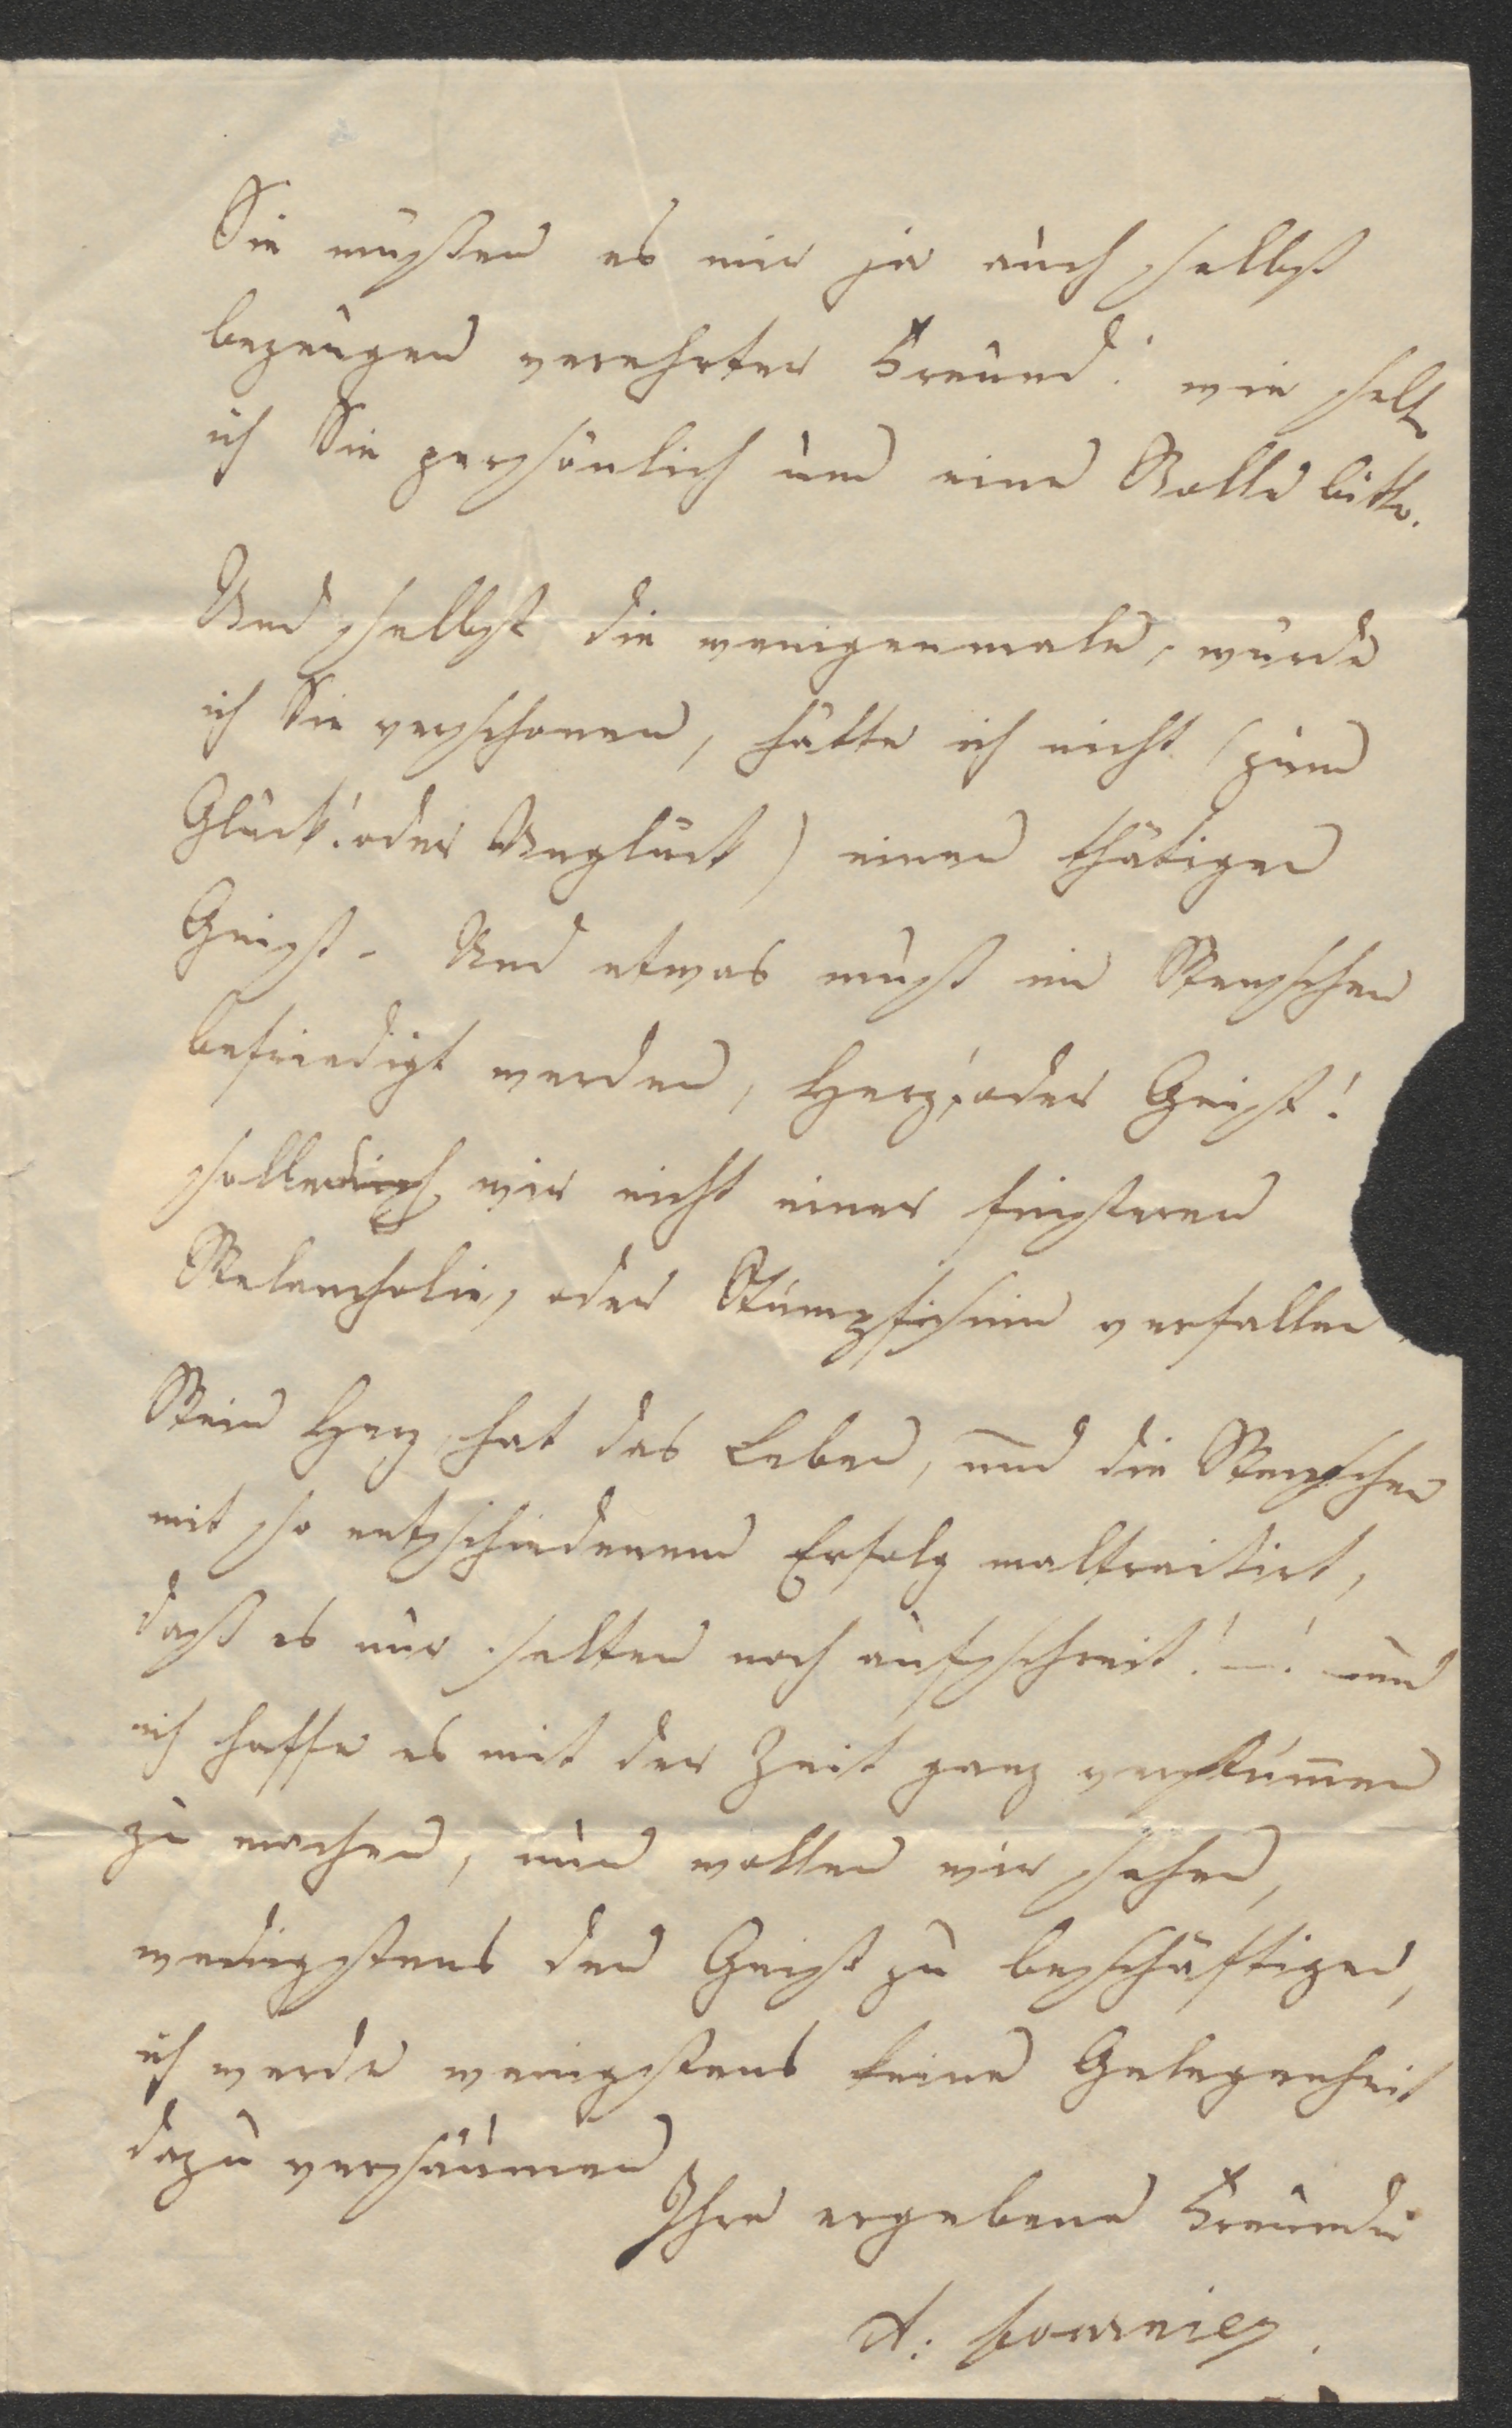 Sie müßen es mir ja auch selbst
bezeugen verehrter Freund! wie selt
ich Sie persönlich um eine Rolle bitte.
Und selbst die wenigenmale, würde
ich Sie verschonen, hätte ich nicht (zum
Glück! oder Unglück) einen thätigen
Geist. Und etwas muß im Menschen
befriedigt werden, Herz, oder Geist!
sollen wir nicht einer finsteren
Melancholie, oder Stumpfsinn verfallen.
Mein Herz hat das Leben, und die Menschen
mit so entschiedenem Erfolg maltraitirt,
daß es nur selten noch aufschreit! —! und
ich hoffe es mit der Zeit ganz verstumen
zu machen, nun wollen wir sehen,
wenigstens den Geist zu beschäftigen,
ich werde wenigstens keine Gelegenheit
dazu versäumen
Ihre ergebene Freundin
A: Fournier.